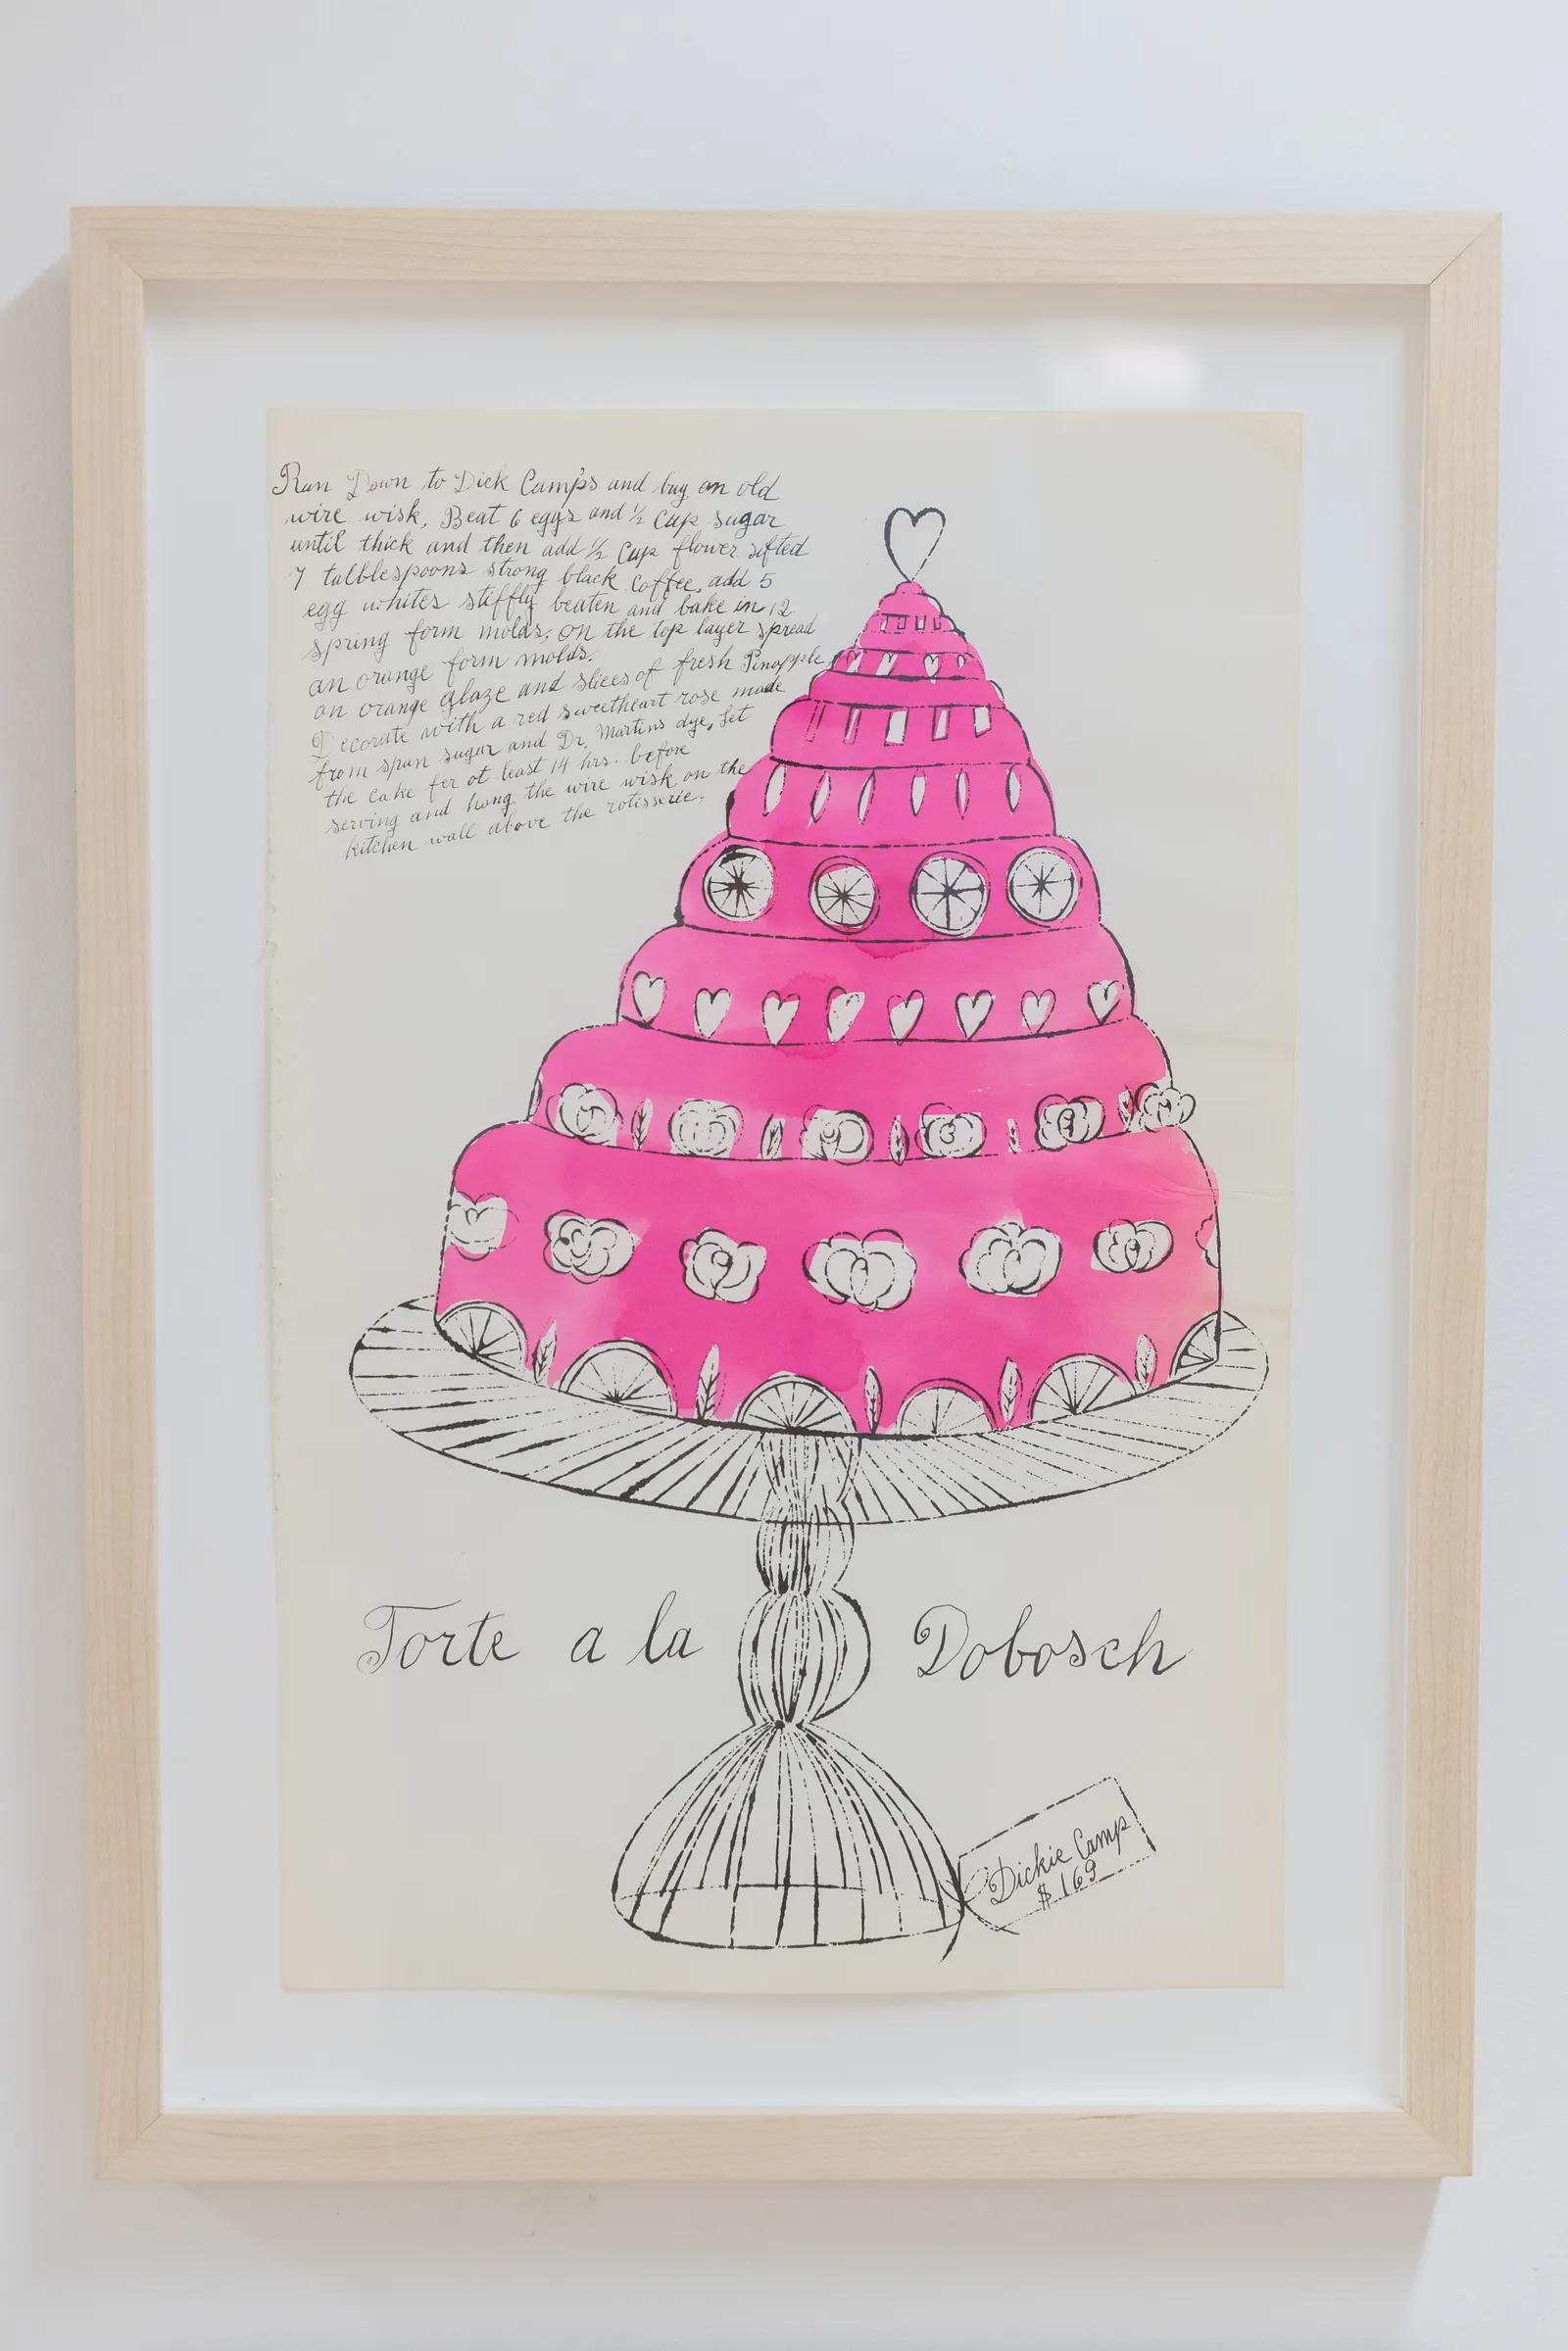 Run Down to Dick Camp's and buy an old
wire wisk, Beat 6 eggs and ½ Cup sugar
until thick and then add ½ Cup flower sifted
7 talblespoons strong black Coffee, add 5
egg whites stiffly beaten and bake in 12
spring form molds, on the top layer spread
an orange form molds.
an orange glaze and slices of fresh Pinapple,
Decorate with a red sweetheart rose made
from spun sugar and Dr. Martins dye, Set
the cake fer at least 14 hrs. before
serving and hang the wire wisk on the
kitchen wall above the rotisserie.
Torte a la Dobosch
Dickie Camp
$169